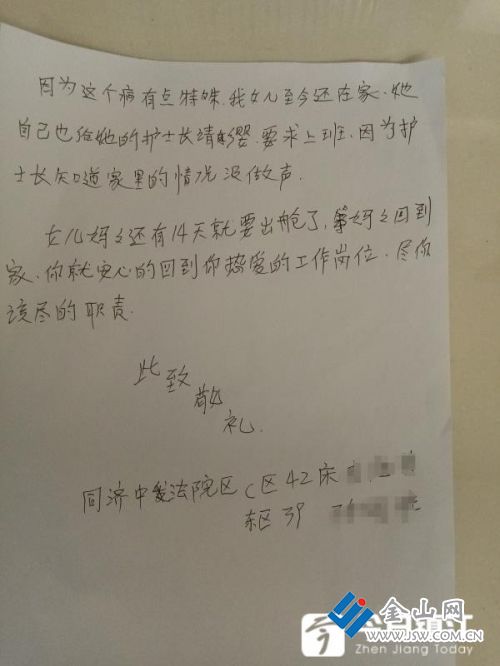 因为这个病有点特殊.我女儿至今还在家、她
自己也给她的护士长请缨.要求上班.因为护
士长知道家里的情况没做声.
女儿妈妈还有14天就要出舱了,等妈妈回到
家、你就安心的回到你热爱的工作岗位、尽你
该尽的职责.
此致
敬
礼.
同济中发法院区 C区42床
东区39
金山网
WWW.JSW.COM.CN
今日镇江
Zhen Jiang Today